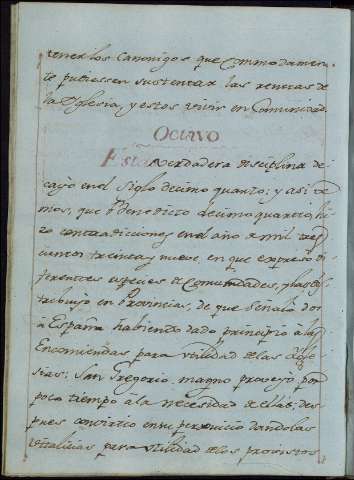 tener los Canonigos que Commodamen-
te pudiessen sustentar las rentas de
la Yglesia, y estos vivir en Comunidad.
Octavo
Esta verdadera disciplina de-
cayo en el siglo decimo quarto; y asi ve-
mos, que Benedicto decimo quarto, hi-
zo contradicciones en el año de mil tres-
cientos treinta y nueve, en que expreso di-
ferentes especies de Comunidades, y las dis-
tribuyo en Provincias, de que señalò dos
à España habiendo dado principio a las
Encomiendas para utilidad de las Ygle-
sias: San Gregorio magno proveyo por
poco tiempo à la necesidad de ellas; des-
pues convirtio en su perjuicio dandolas
vitalicias para utilidad de los provistos